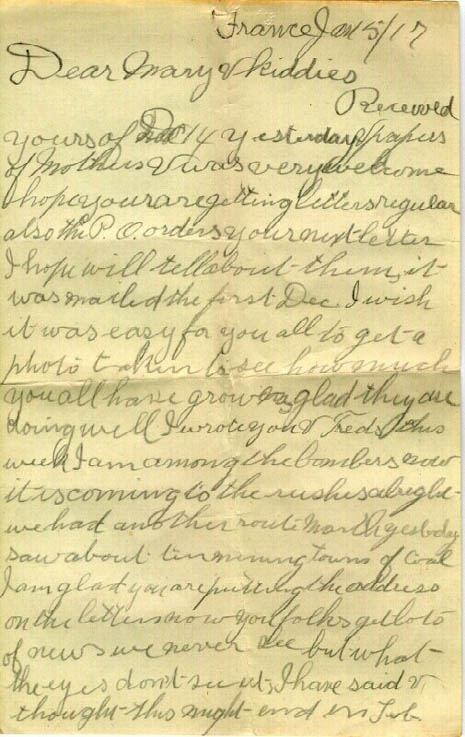 France Jan 5/17
Dear Mary & kiddies
Received
yours of Dec 14 yesterday & papers
of Mothers & was very welcome
I hope your are getting letters regular
also the P.O. orders your next letter
I hope will tell about them, it
was mailed the first Dec. I wish
it was easy for you all to get a
photo taken to see how much
you all have grown glad they are
doing well I wrote you & Freds this
week I am among the bombers now
it is coming to the rushes alright
we had another route march yesterday
saw about ten mining towns of coal
I am glad you are putting the address
on the letters now you folks get lots
of news we never see but what
the eyes dont see I have said &
thought this might end in Feb